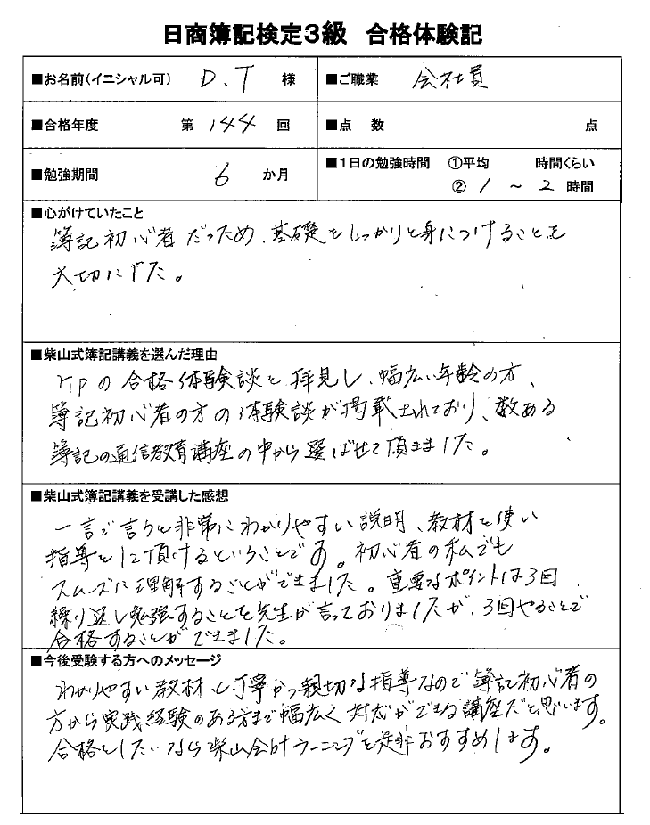 日商簿記検定3級 合格体験記
■お名前(イニシャル可) D.T 様 ■ご職業 会社員
■合格年度 第 144 回 ■点 数 点
■勉強期間 6 か月 ■1日の勉強時間 ①平均 時間くらい
② 1 ~ 2 時間
■心がけていたこと
簿記初心者だったため、基礎をしっかりと身につけることを
大切にした。
■柴山式簿記講義を選んだ理由
HPの合格体験談を拝見し、幅広い年齢の方、
簿記初心者の方の体験談が掲載されており、数ある
簿記の通信教育講座の中から選ばせて頂きました。
■柴山式簿記講義を受講した感想
一言で言うと非常にわかりやすい説明、教材を使い
指導をして頂けるということです。初心者の私でも
スムーズに理解することができました。重要なポイントは3回
繰り返し勉強することを先生が言っておりましたが、3回やることで
合格することができました。
■今後受験する方へのメッセージ
わかりやすい教材と丁寧かつ親切な指導なので簿記初心者の
方から実践経験のある方まで幅広く対応ができる講座だと思います。
合格をしたいなら柴山会計ラーニングを是非おすすめします。